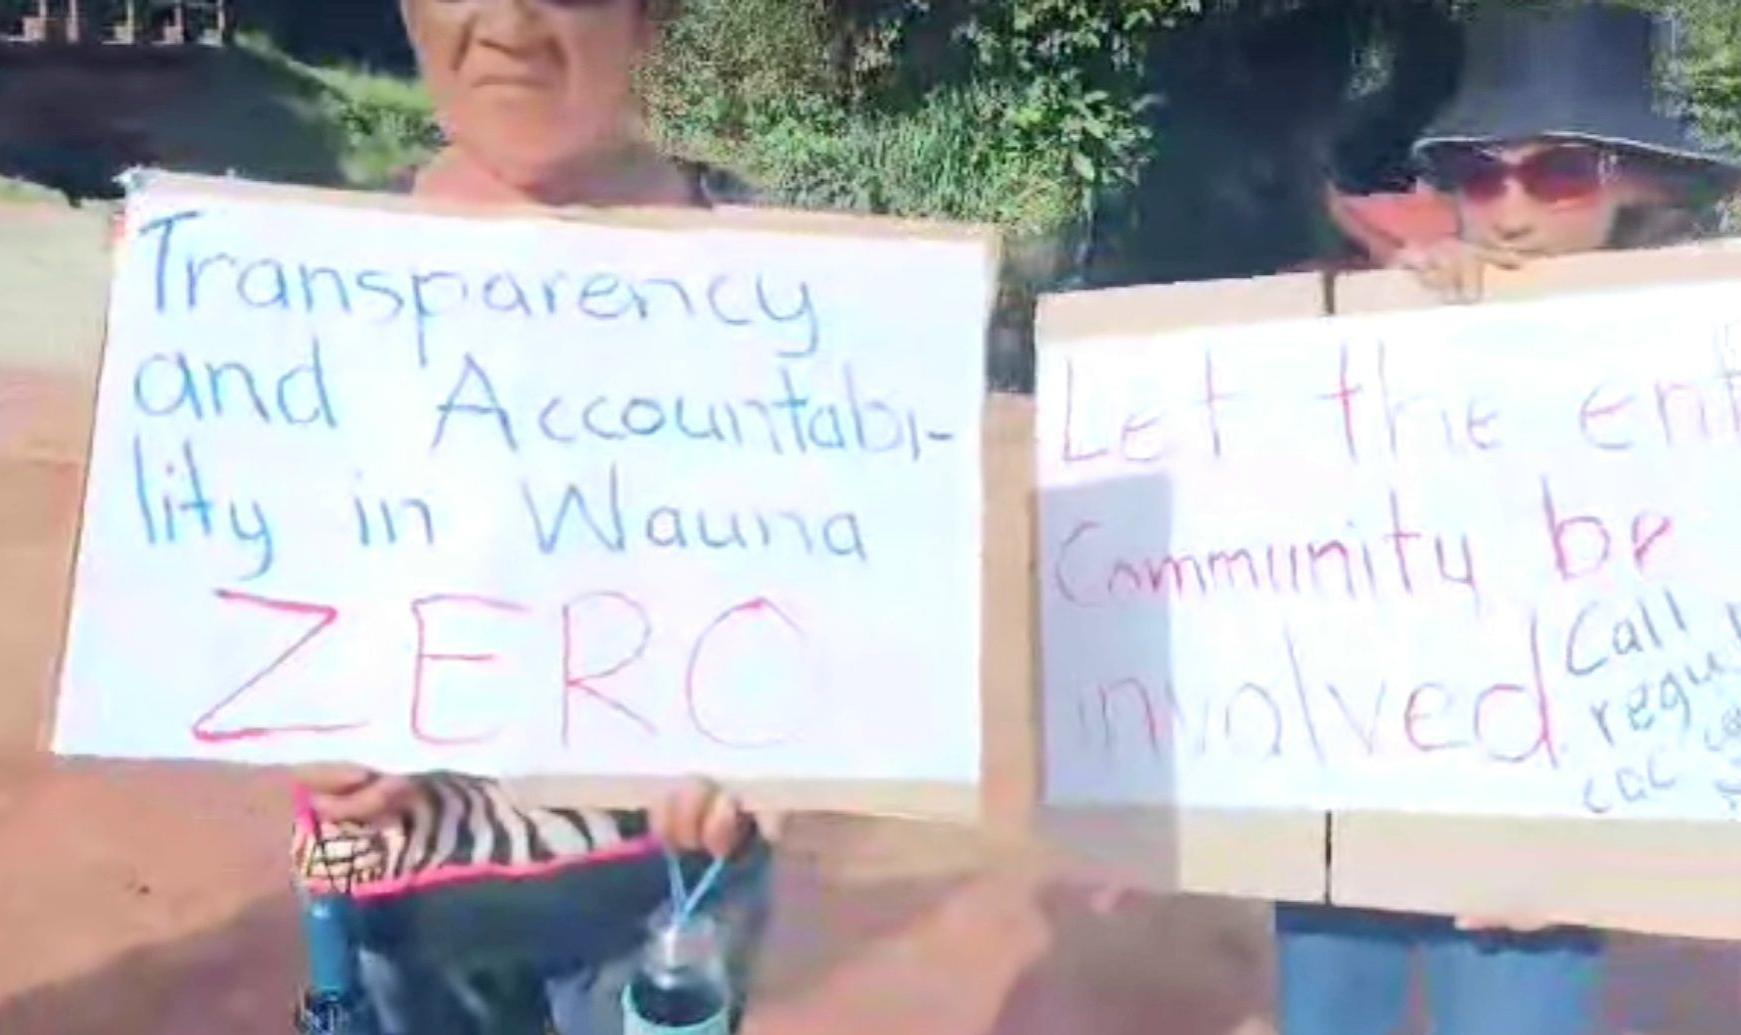 Transparency
and Accountabi-
lity in Wauna
ZERO
Let the
Community be
involved
Call
cac